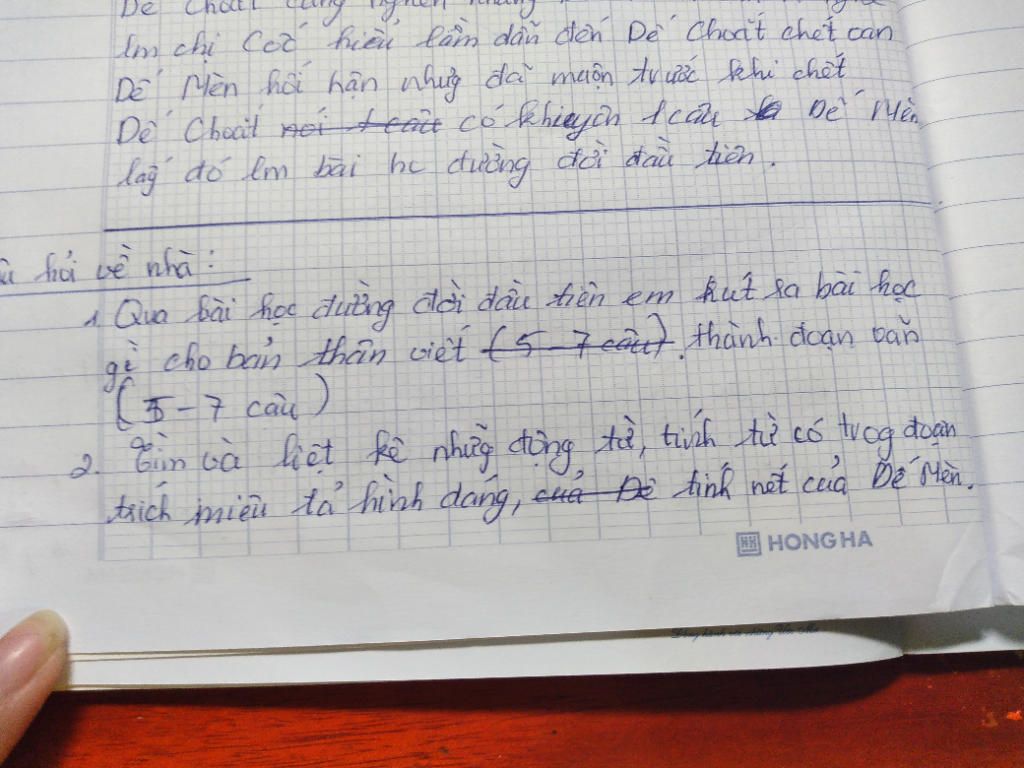 Dế Choắt
lm chị Cốc hiểu lầm dẫn đến Dế Choắt chết oan
Dế Mèn hối hận nhưg đã muộn trước khi chết
Dế Choắt nói 1 câu có khuyên 1 câu Dế Mèn
lấy đó lm bài hc đường đời đầu tiên.
hỏi về nhà:
1. Qua bài học đường đời đầu tiên em rút ra bài học
gì cho bản thân viết (5 - 7 câu). thành đoạn văn
(5 - 7 câu)
2. Tìm và liệt kê nhữg động từ, tính từ có trog đoạn
trích miêu tả hình dáng, của Dế tính nết của Dế Mèn.
HONG HA